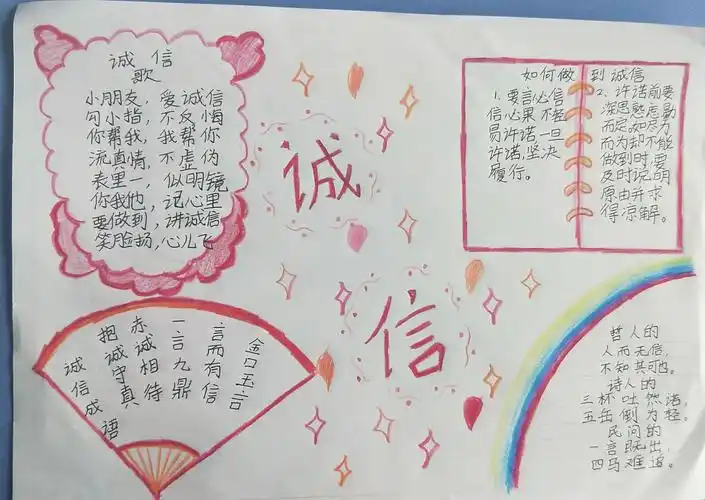 诚信
歌
小朋友，爱诚信
勾小指，不反悔
你帮我，我帮你
流真情，不虚伪
表里一，似明镜
你我他，记心里
要做到，讲诚信
笑脸扬，心儿飞
诚
信
如何做到诚信
1、要言必信
信必果 不轻
易许诺一旦
许诺，坚决
履行。
2、许诺前要
深思
而定
而为却不能
做到时，要
及时说明
原由并求
得凉解。
金口玉言
言而有信
一言九鼎
赤诚相待
抱诚守真
诚信成语
哲人的
人而无信，
不知其可也。
诗人的
三杯吐然诺，
五岳倒为轻。
民间的
一言既出，
四马难追。